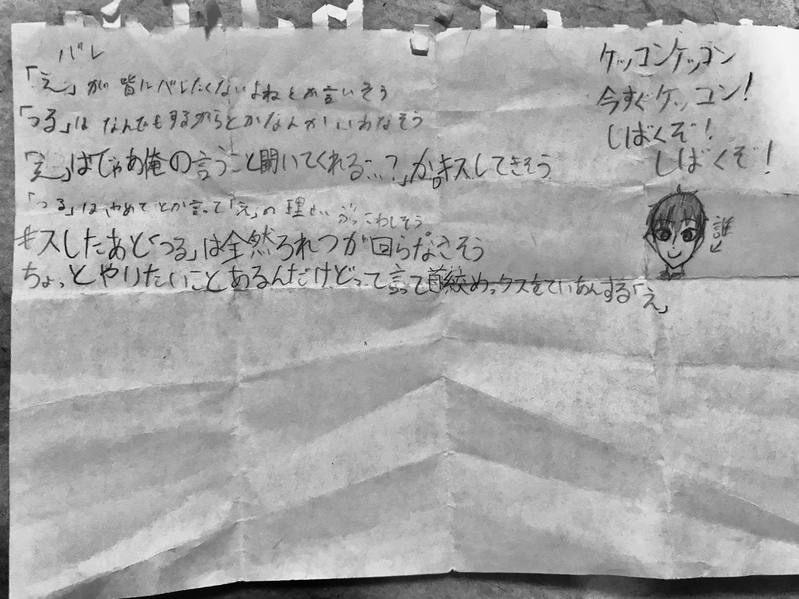 バレ
「え」が皆にバレたくないよねとか言いそう
「つる」はなんでもするからとかなんかいいわなそう
「え」はじゃあ俺の言うこと聞いてくれる…?」からキスしてきそう
「つる」はやめてとか言って「え」の理せいぶっこわしそう
キスしたあと「つる」は全然ろれつが回らなさそう
ちょっとやりたいことあるんだけどって言って首絞めっクスをていあんする「え」
ケッコンケッコン
今すぐケッコン!
しばくぞ!
しばくぞ!
誰